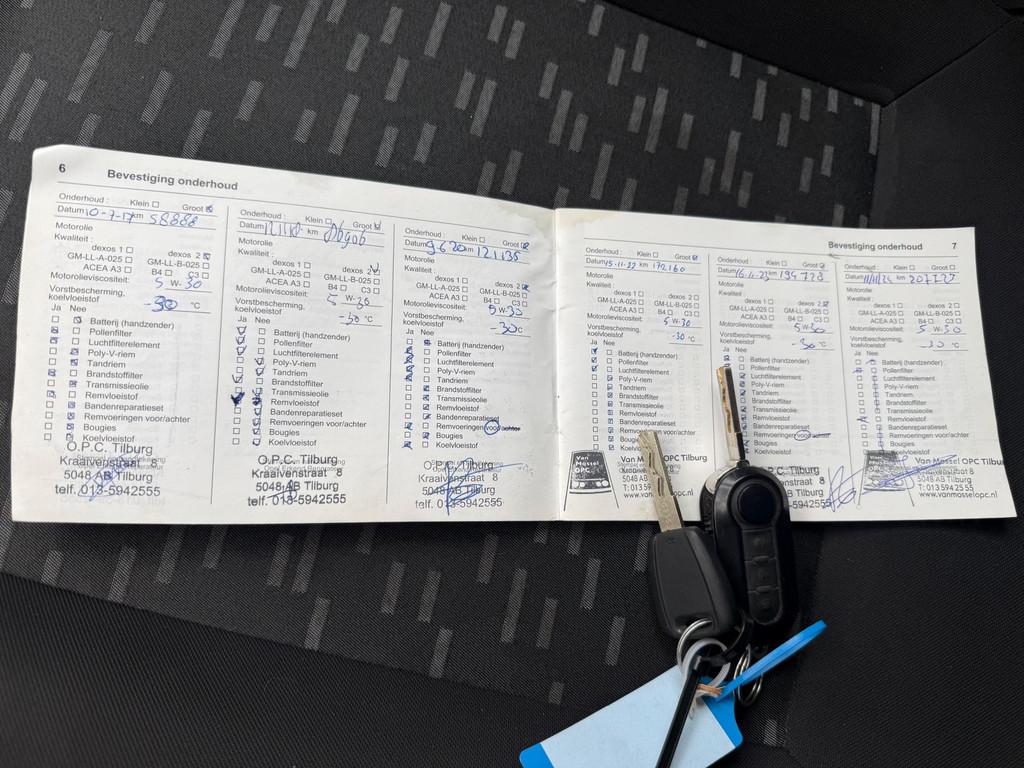 6 Bevestiging onderhoud
Onderhoud : Klein Groot
Datum 10-7-17 km 58888
Motorolie
Kwaliteit :
dexos 1 dexos 2
GM-LL-A-025 GM-LL-B-025
ACEA A3 B4 C3
Motorolieviscositeit: 5 W-30
Vorstbescherming,
koelvloeistof -30 °C
Ja Nee
Batterij (handzender)
Pollenfilter
Luchtfilterelement
Poly-V-riem
Tandriem
Brandstoffilter
Transmissieolie
Remvloeistof
Bandenreparatieset
Remvoeringen voor/achter
Bougies
Koelvloeistof
O.P.C. Tilburg
Kraaivenstraat 8
5048 AB Tilburg
telf. 013-5942555
Onderhoud : Klein Groot
Datum km
Motorolie
Kwaliteit :
dexos 1 dexos 2
GM-LL-A-025 GM-LL-B-025
ACEA A3 B4 C3
Motorolieviscositeit: 5 W-30
Vorstbescherming,
koelvloeistof -30 °C
Ja Nee
Batterij (handzender)
Pollenfilter
Luchtfilterelement
Poly-V-riem
Tandriem
Brandstoffilter
Transmissieolie
Remvloeistof
Bandenreparatieset
Remvoeringen voor/achter
Bougies
Koelvloeistof
O.P.C. Tilburg
Kraaivenstraat 8
5048 AB Tilburg
telf. 013-5942555
Onderhoud : Klein Groot
Datum 9-6-20 km 121135
Motorolie
Kwaliteit :
dexos 1 dexos 2
GM-LL-A-025 GM-LL-B-025
ACEA A3 B4 C3
Motorolieviscositeit: 5 W-30
Vorstbescherming,
koelvloeistof -30 °C
Ja Nee
Batterij (handzender)
Pollenfilter
Luchtfilterelement
Poly-V-riem
Tandriem
Brandstoffilter
Transmissieolie
Remvloeistof
Bandenreparatieset
Remvoeringen voor/achter
Bougies
Koelvloeistof
O.P.C. Tilburg
Kraaivenstraat 8
5048 AB Tilburg
telf. 013-5942555
Bevestiging onderhoud 7
Onderhoud : Klein Groot
Datum 15-11-22 km 172160
Motorolie
Kwaliteit :
dexos 1 dexos 2
GM-LL-A-025 GM-LL-B-025
ACEA A3 B4 C3
Motorolieviscositeit: 5 W-30
Vorstbescherming,
koelvloeistof -30 °C
Ja Nee
Batterij (handzender)
Pollenfilter
Luchtfilterelement
Poly-V-riem
Tandriem
Brandstoffilter
Transmissieolie
Remvloeistof
Bandenreparatieset
Remvoeringen voor/achter
Bougies
Koelvloeistof
Van Mossel OPC
Van
5048 AB Tilburg
T: 013 59
www.van
Onderhoud : Klein Groot
Datum 16-11-23 km 194778
Motorolie
Kwaliteit :
dexos 1 dexos 2
GM-LL-A-025 GM-LL-B-025
ACEA A3 B4 C3
Motorolieviscositeit: 5 W-30
Vorstbescherming,
koelvloeistof -30 °C
Ja Nee
Batterij (handzender)
Pollenfilter
Luchtfilterelement
Poly-V-riem
Tandriem
Brandstoffilter
Transmissieolie
Remvloeistof
Bandenreparatieset
Remvoeringen voor/achter
Bougies
Koelvloeistof
P.C. Tilburg
venstraat 8
AB Tilburg
-5942555
Onderhoud : Klein Groot
Datum km
Motorolie
Kwaliteit :
dexos 1 dexos 2
GM-LL-A-025 GM-LL-B-025
ACEA A3 B4 C3
Motorolieviscositeit: 5 W-30
Vorstbescherming,
koelvloeistof -30 °C
Ja Nee
Batterij (handzender)
Pollenfilter
Luchtfilterelement
Poly-V-riem
Tandriem
Brandstoffilter
Transmissieolie
Remvloeistof
Bandenreparatieset
Remvoeringen voor/achter
Bougies
Koelvloeistof
Van Mossel OPC Tilburg
5048 AB Tilburg
T: 013 594 25 55
www.vanmosselopc.nl